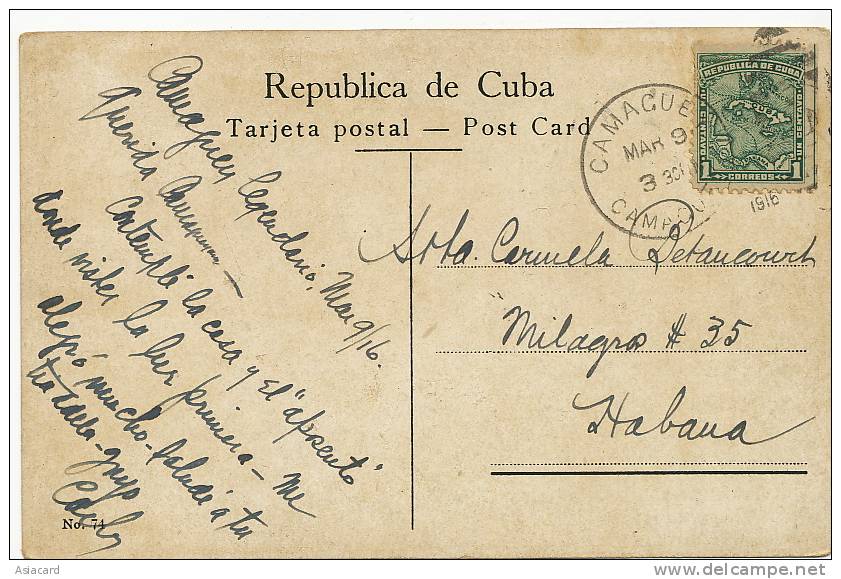 Republica de Cuba
Tarjeta postal — Post Card
REPUBLICA DE CUBA
1 CORREOS 1
CAMAGUE
MAR 9
3 30
CAMAGU
1916
Camaguey legendario, Mar 9/16.
Querida
Contemplé la casa y el "aposento"
donde vistes la luz primera — me
alegró mucho - saludé a tu
tia Adela -
Srta. Carmela Betancourt
Milagros # 35
Habana
No. 74
Asiacard
delcampe.net